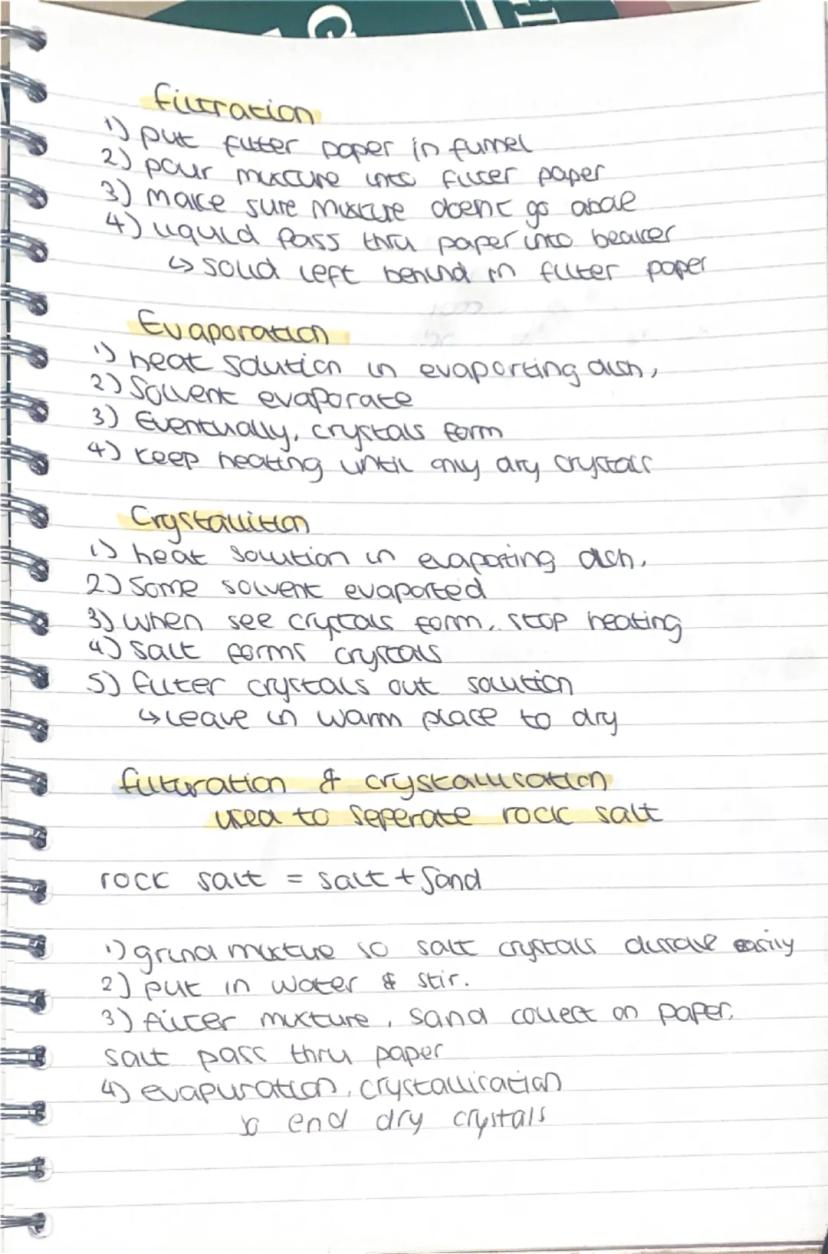 filtration
1) put filter paper in funnel
2) pour mixture into filter paper
3) make sure mixture doent go above
4) liquid pass thru paper into beaker
↳ solid left behind in filter paper
Evaporation
1) heat solution in evaporting dish,
2) Solvent evaporate
3) Eventually, crystals form
4) keep heating until only dry crystals
Crystallition
1) heat solution in evaporting dish.
2) Some solvent evaported
3) when see crystals form, stop heating
4) salt forms crystals
5) filter crystals out solution
↳ leave in warm place to dry
filturation & crystallisation
used to seperate rock salt
rock salt = salt + sand
1) grind mixture so salt crystals dissolve easily
2) put in water & stir.
3) filter mixture, sand collect on paper.
salt pass thru paper
4) evapuration, crystallisation
to end dry crystals